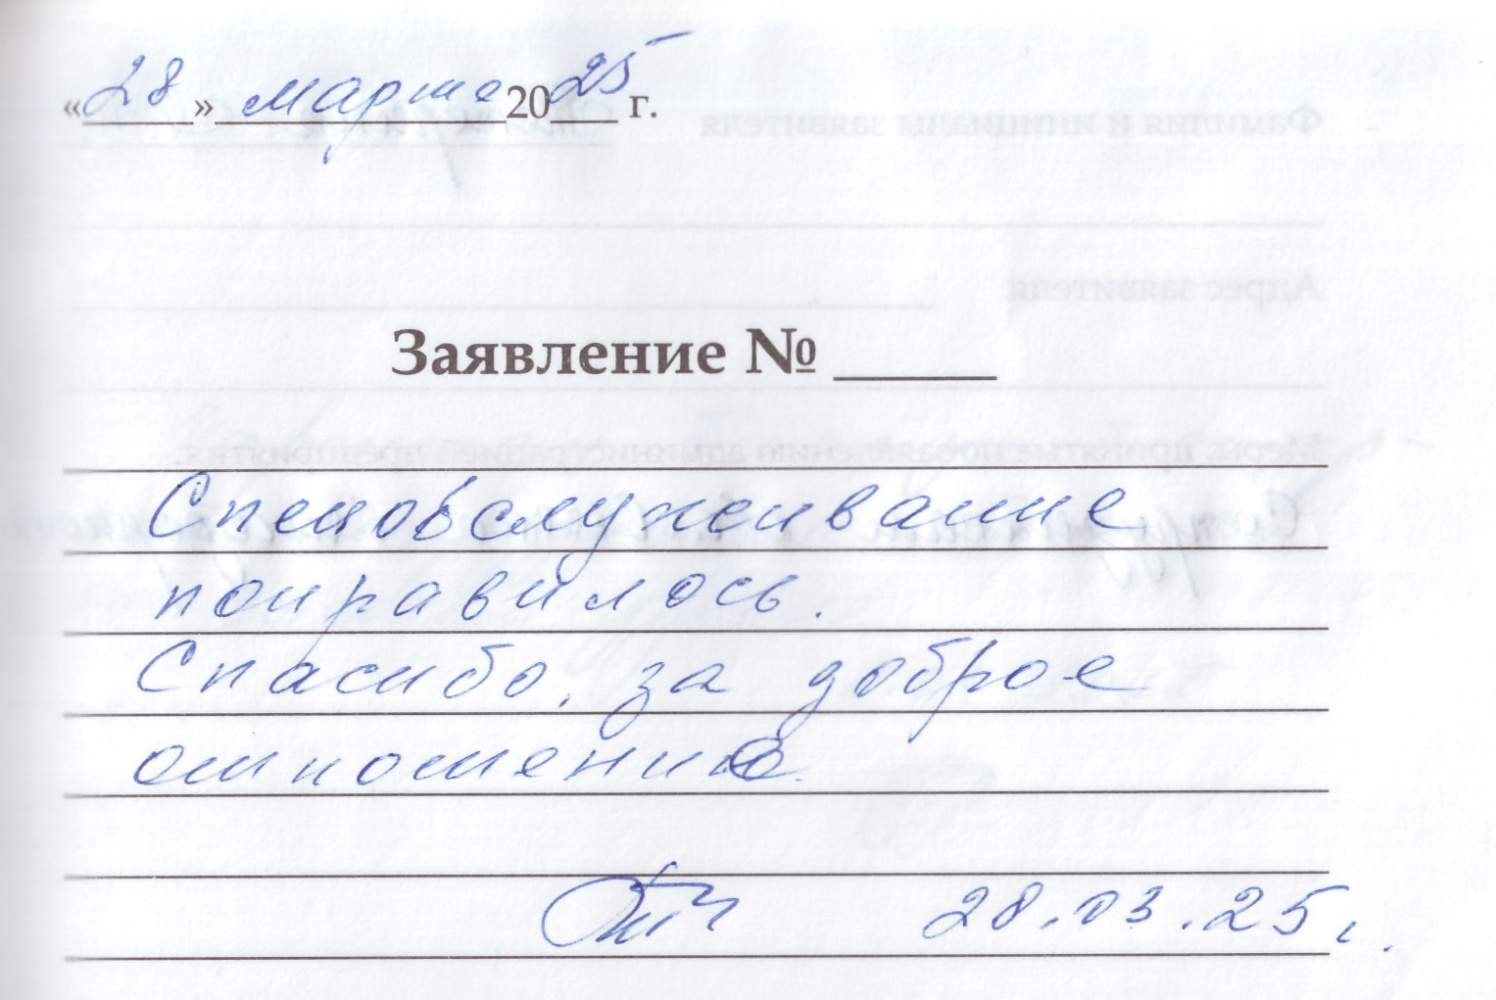 «28» марта 2025 г.
Заявление № _____
Спецобслуживание
понравилось.
Спасибо, за доброе
отношение.
28.03.25г.